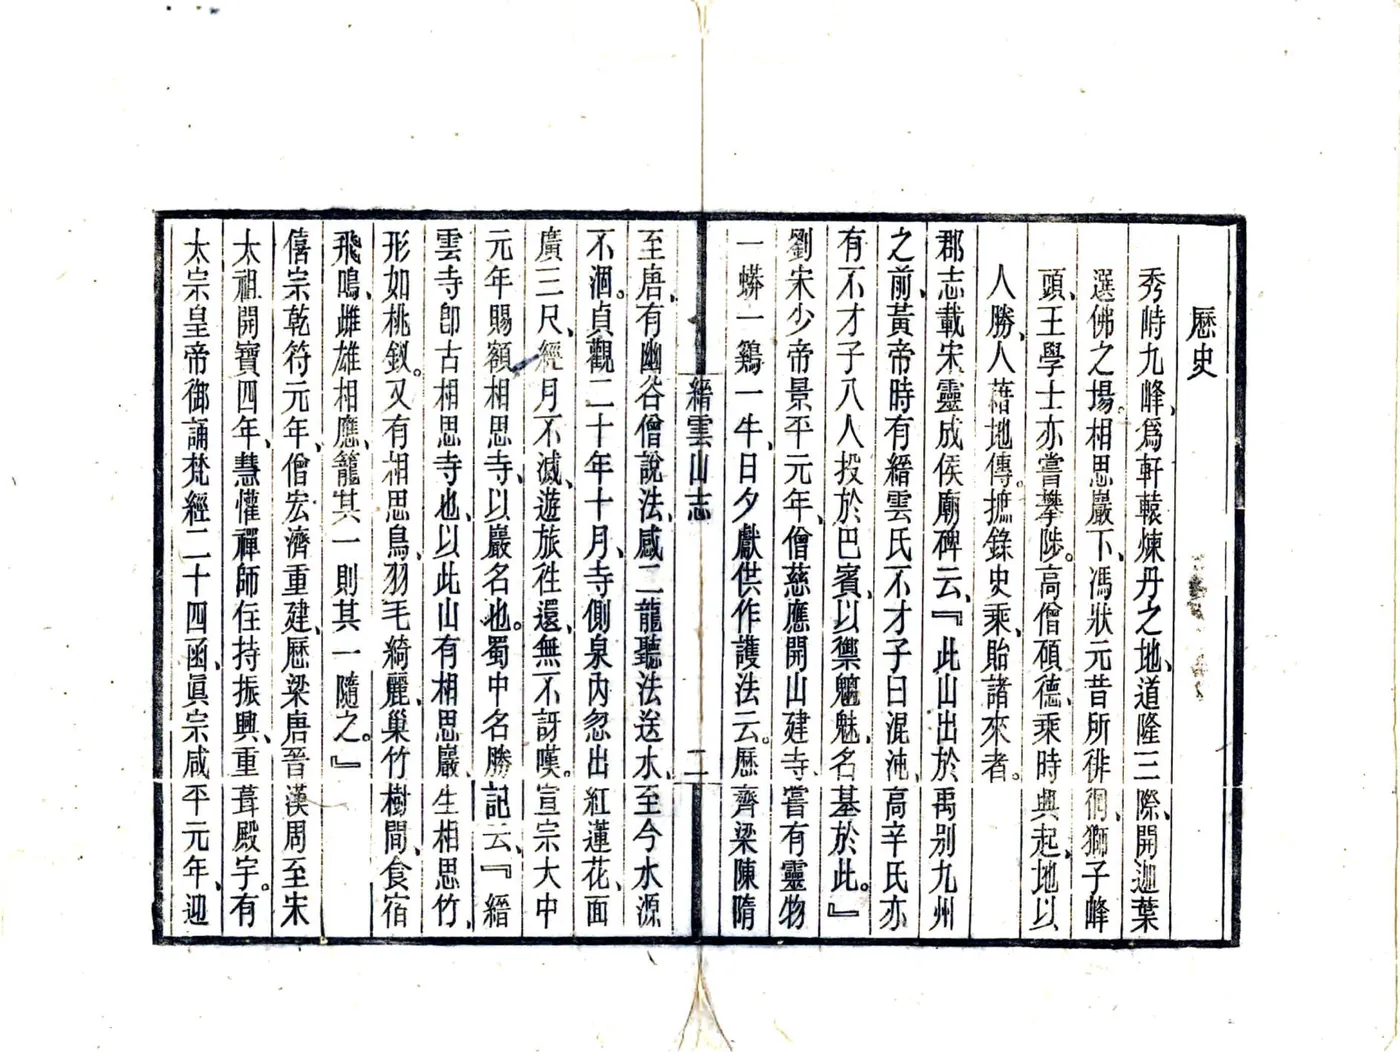 歷史
秀時九峰、爲軒轅煉丹之地、道隆三際、開迦葉
選佛之場。相思巖下、馮狀元昔所徘徊、獅子峰
頭、王學士亦嘗攀陟。高僧碩德、乘時興起、地以
人勝、人藉地傳。摭錄史乘、貽諸來者。
郡志載宋靈成侯廟碑云、『此山出於禹別九州
之前、黃帝時有縉雲氏不才子曰混沌、高辛氏亦
有不才子八人投於巴賨、以禦魑魅、名基於此。』
劉宋少帝景平元年、僧慈應開山建寺、嘗有靈物
一蟒一鷄一牛、日夕獻供作護法云。歷齊梁陳隋
縉雲山志
二
至唐、有幽谷僧說法、感二龍聽法送水、至今水源
不涸。貞觀二十年十月、寺側泉內忽出紅蓮花、面
廣三尺、經月不滅、遊旅徃還、無不訝嘆。宣宗大中
元年賜額相思寺、以巖名也。蜀中名勝記云、『縉
雲寺卽古相思寺也、以此山有相思巖、生相思竹、
形如桃釵。又有相思鳥、羽毛綺麗、巢竹樹間、食宿
飛鳴、雌雄相應、籠其一則其一隨之。』
僖宗乾符元年、僧宏濟重建、歷梁唐晉漢周至宋
太祖開寶四年、慧懽禪師住持振興、重葺殿宇。有
太宗皇帝御誦梵經二十四函、眞宗咸平元年、迎